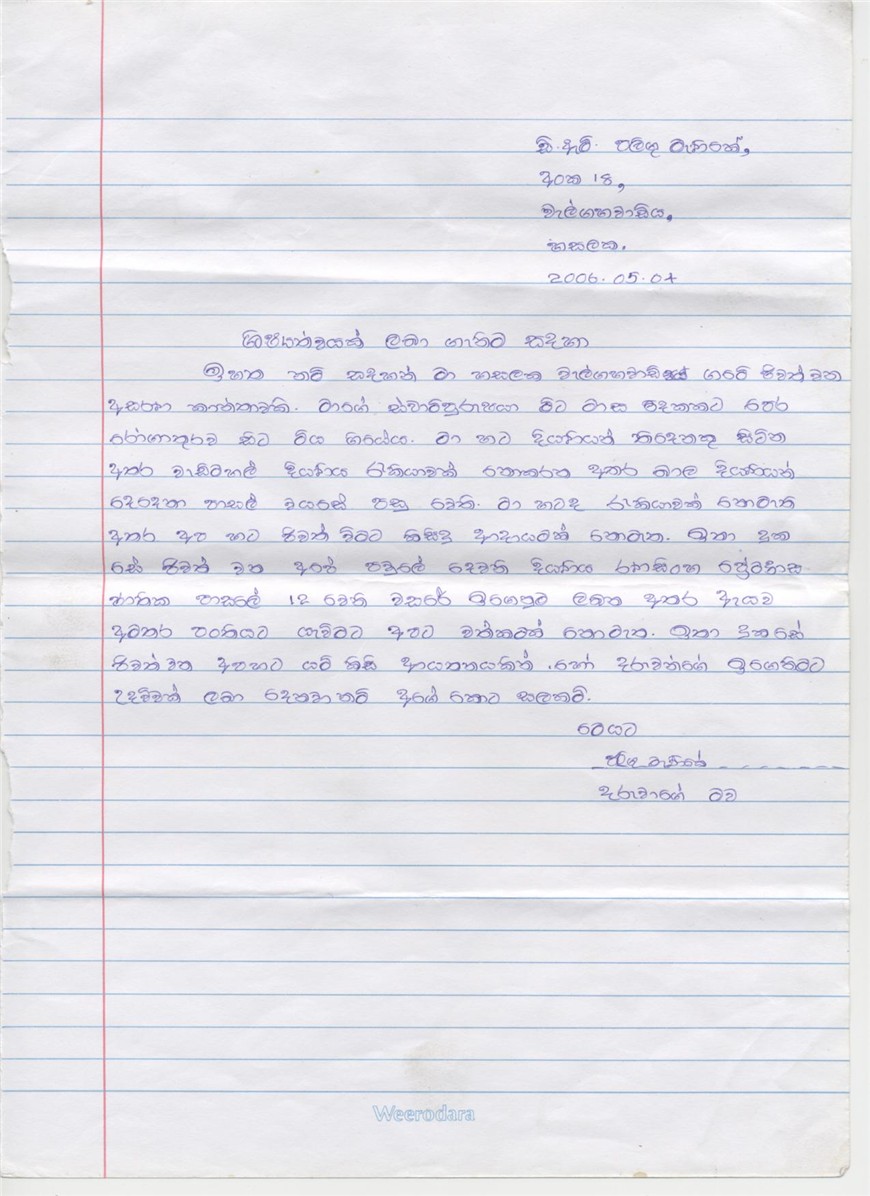 ඩී.ඇම්. පලිගු මැණිකේ,
අංක 18,
වැල්ගහවාඩිය,
හසලක.
2006.05.04
ශිෂ්‍යත්වයක් ලබා ගැනීමට සදහා
ඉහත නම් සඳහන් මා හසලක වැල්ගහවාඩිය ගමේ ජීවත් වන
අසරණ කාන්තාවකි. මාගේ ස්වාමිපුරුෂයා මීට මාස දෙකකට පෙර
රෝගාතුරව සිට මිය ගියේය. මා හට දියණියන් තිදෙනකු සිටින
අතර වැඩිමහල් දියණිය රැකියාවක් නොකරන අතර බාල දියණියන්
දෙදෙනා පාසල් වයසේ පසු වෙති. මා හටද රැකියාවක් නොමැති
අතර අප හට ජීවත් වීමට කිසිදු ආදායමක් නොමැත. ඉතා දුක
සේ ජීවත් වන අපේ පවුලේ දෙවන දියණිය රණසිංහ ප්‍රේමදාස
ජාතික පාසලේ 12 වෙනි වසරේ ඉගෙනුම ලබන අතර ඇයව
අමතර පංතියට යැවීමට අපට වත්කමක් නොමැත. ඉතා දුකසේ
ජීවත් වන අපහට යම් කිසි ආයතනයකින් හෝ දරුවන්ගේ ඉගෙනීමට
උදව්වක් ලබා දෙනවා නම් අගේ කොට සලකමි.
මෙයට
පලිගු මැණිකේ
දරුවාගේ මව
Weerodara